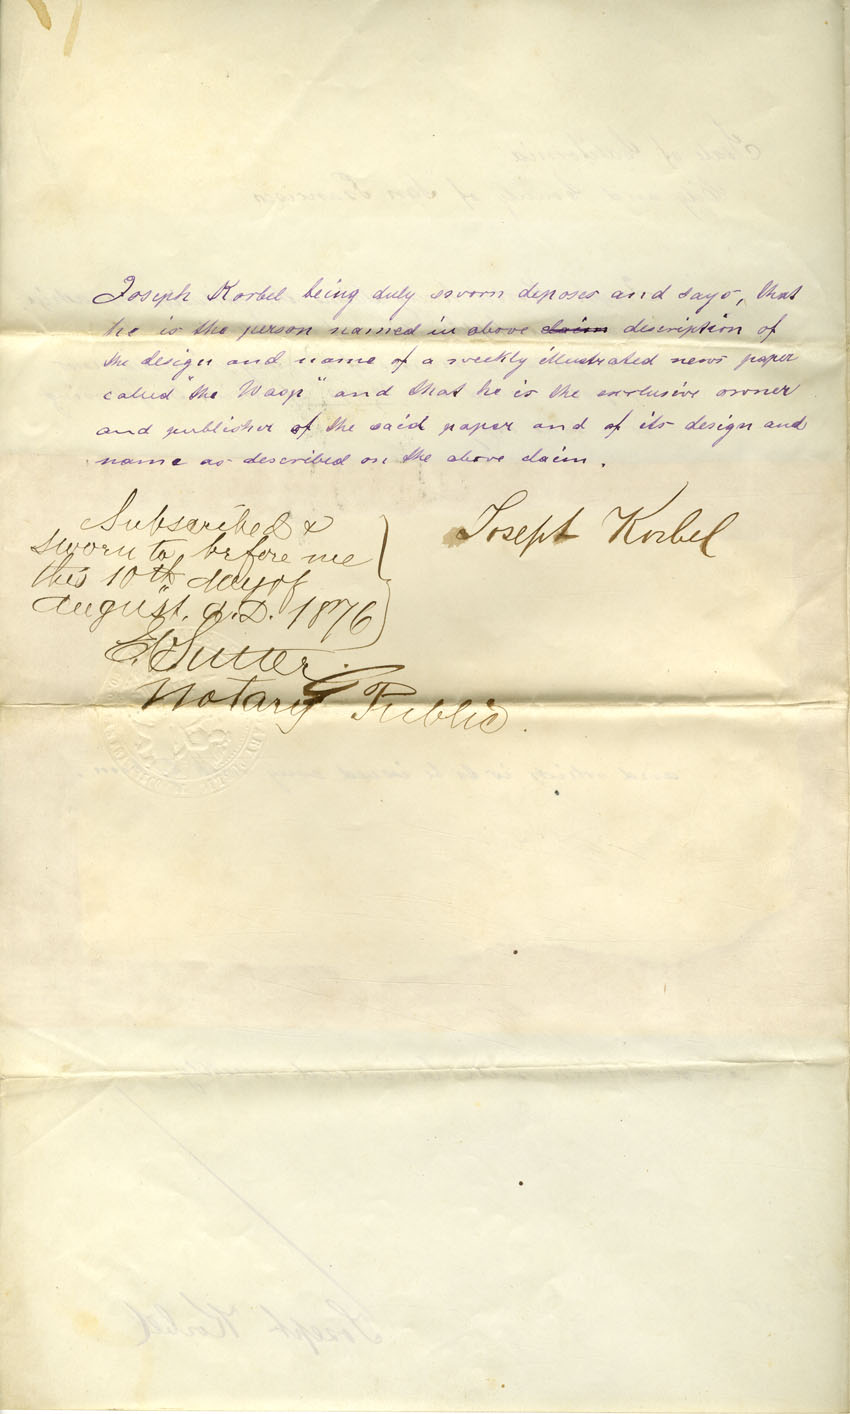 Joseph Korbel being duly sworn deposes and says, that
he is the person named in above claim description of
the design and name of a weekly illustrated news paper
called "the Wasp" and that he is the exclusive owner
and publisher of the said paper and of its design and
name as described on the above claim.
Joseph Korbel
Subscribed &
sworn to before me
this 10th day of
August. A.D. 1876
Sutter
Notary Public.